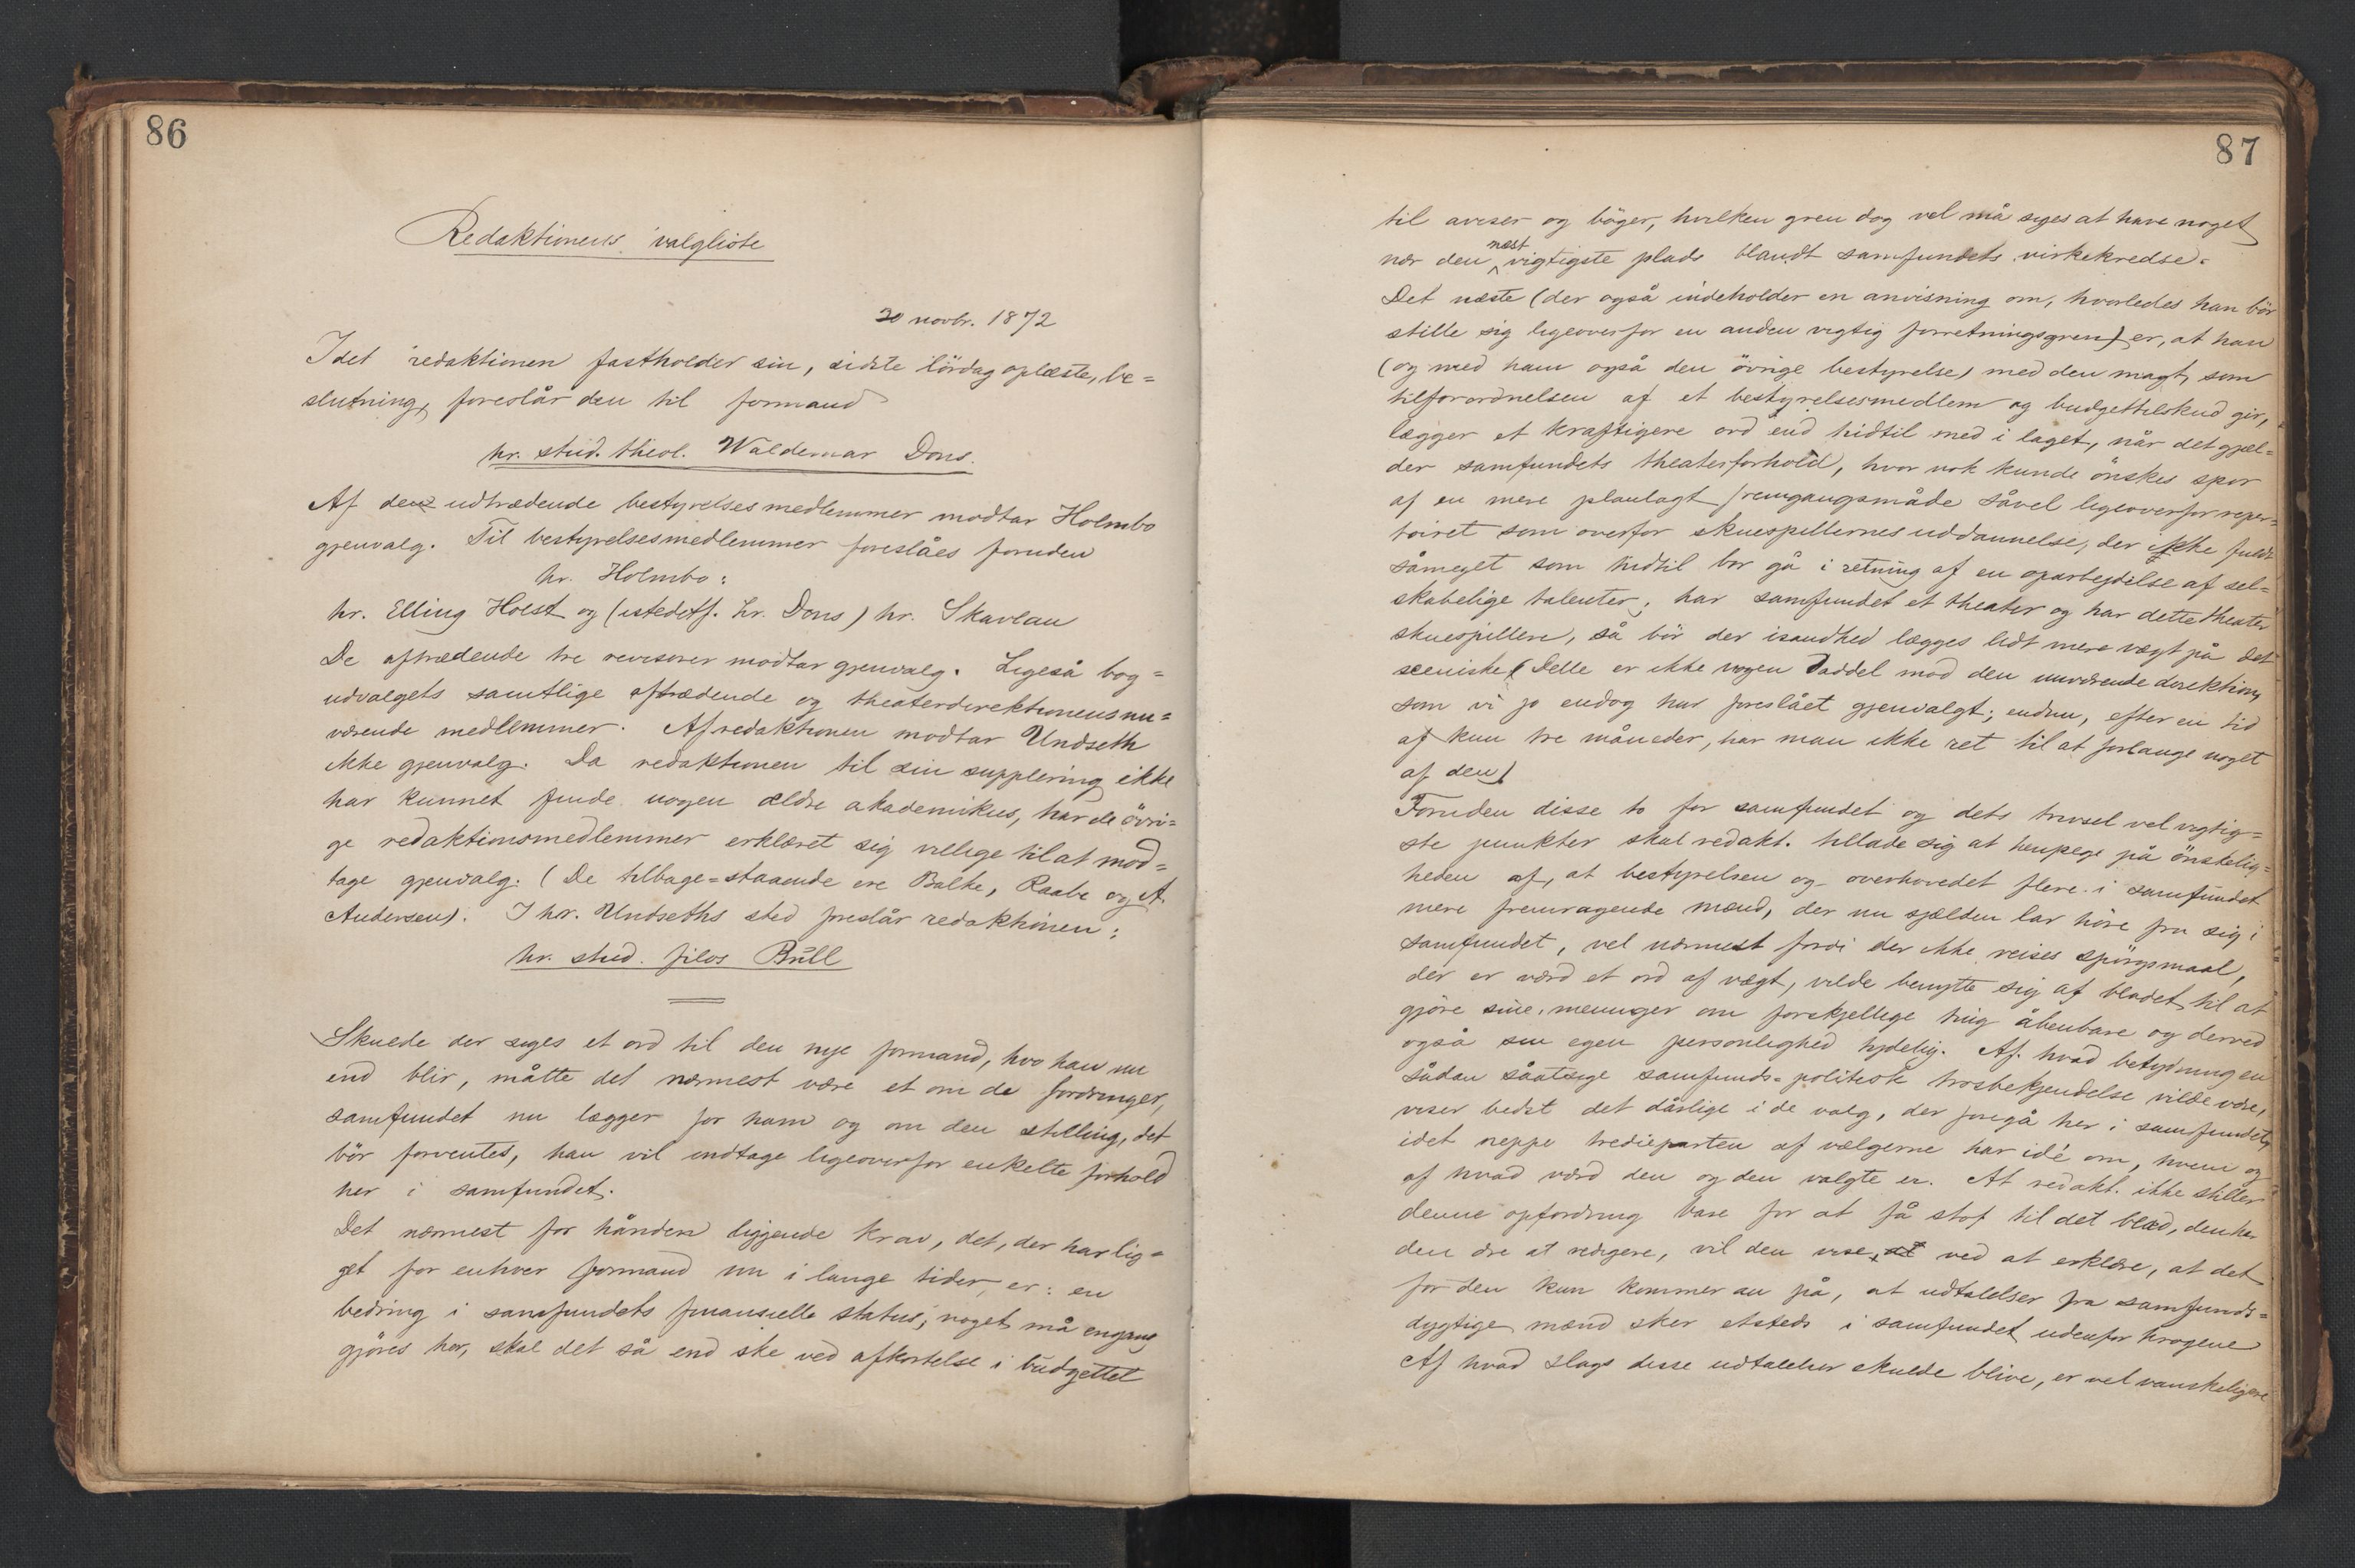 86
Redaktionens valgliste
30 novbr. 1872
Idet redaktionen fastholder sin, sidste lördag oplæste, be=
slutning, foreslår den til formand
hr. stud. theol. Waldemar Dons.
Af de udtrædende bestyrelsesmedlemmer modtar Holmbo
gjenvalg. Til bestyrelsesmedlemmer foreslåes foruden
hr. Holmbo:
hr. Elling Holst og (istedetf. hr. Dons) hr. Skavlan
De aftrædende tre revisorer modtar gjenvalg. Ligeså bog=
udvalgets samtlige aftrædende og theaterdirektionens nu=
værende medlemmer. Af redaktionen modtar Undseth
ikke gjenvalg. Da redaktionen til sin supplering ikke
har kunnet finde nogen ældre akademikus, har de övri=
ge redaktionsmedlemmer erklæret sig villige til at mod=
tage gjenvalg. (De tilbage=staaende ere Balke, Raabe og A.
Andersen). I hr. Undseths sted foreslår redaktionen:
hr. stud. filos Bull
Skulde der siges et ord til den nye formand, hvo han nu
end blir, måtte det nærmest være et om de fordringer,
samfundet nu lægger for ham og om den stilling, det
bör forventes, han vil indtage ligeoverfor enkelte forhold
her i samfundet.
Det nærmest for hånden liggende krav, det, der har lig=
get for enhver formand nu i lange tider, er: en
bedring i samfundets finansielle status; noget må engang
gjöres her, skal det så end ske ved afkortelse i budgettet
87
til aviser og böger, hvilken gren dog vel må siges at have noget
nær den næst vigtigste plads blandt samfundets virkekredse.
Det næste (der også indeholder en anvisning om, hvorledes han bör
stille sig ligeoverfor en anden vigtig forretningsgren) er, at han
(og med ham også den övrige bestyrelse) med den magt, som
tilforordnelsen af et bestyrelsesmedlem og budgettilskud gir,
lægger et kraftigere ord end hidtil med i laget, når det gjæl=
der samfundets theaterforhold, hvor nok kunde önskes spor
af en mere planlagt fremgangsmåde såvel ligeoverfor reper=
toiret som overfor skuespillernes uddannelse, der ikke fuldt
såmeget som hidtil bør gå i retning af en oparbejdelse af sel=
skabelige talenter; har samfundet et theater og har dette theater
skuespillere, så bör der isandhed lægges lidt mere vægt på det
sceniske (Dette er ikke nogen daddel mod den nuværende direktion,
som vi jo endog har foreslået gjenvalgt; endnu, efter en tid
af kun tre måneder, har man ikke ret til at forlange noget
af den)
Foruden disse to for samfundet og dets trivsel vel vigtig=
ste punkter skal redakt. tillade sig at henpege på önskelig=
heden af, at bestyrelsen og overhovedet flere i samfundet
mere fremragende mænd, der nu sjælden lar höre fra sig i
samfundet, vel nærmest fordi der ikke reises spörgsmaal,
der er værd et ord af vægt, vilde benytte sig af bladet til at
gjöre sine meninger om forskjellige ting åbenbare og derved
også sin egen personlighed tydelig. Af hvad betydning en
sådan såatsige samfunds=politisk trosbekjendelse vilde være,
viser bedst det dårlige i de valg, der foregå her i samfundet,
idet neppe trediéparten af vælgerne har idé om, hvem og
af hvad værd den og den valgte er. At redakt. ikke stiller
denne opfordring bare for at få stof til det blad, den har
den ære at redigere, vil den vise ved at erklære, at det
for den kun kommer an på, at udtalelser fra samfunds=
dygtige mænd sker etsteds i samfundet udenfor krogene
Af hvad slags disse udtalelser skulde blive, er vel vanskeligere